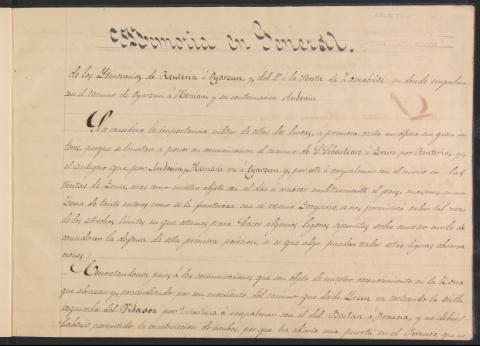 Memoria en General.
de los Ytinerarios de Renteria á Oyarzun, y del Yd. á la Venta de Zamalvide en donde empalma
con el camino de Oyarzun á Hernani y su continuacion Andoain
Si se considera la importancia militar de estas dos lineas, á primera vista no ofrece un gran in-
teres, porque se limitan a poner en comunicacion el camino de Sn. Sebastian á Irun por Renteria, y
el antiguo que por Andoain, Hernani va á Oyarzun y por este á empalmar con el nuevo en las
Ventas de Irun; mas como nuestro objeto sea el dar á conocer militarmente el pais, maxime en una
Zona de tanto interes como es la fronteriza con el vecino Ymperio, se nos permitirá salir tal vez
de los estrechos limites en que estamos para hacer algunos ligeros apuntes sobre nuestro modo de
considerar la defensa de esta primera posicion, si es que algo puedan valer estas ligeras observa-
ciones.
Concretandonos pues á las comunicaciones que son objeto de nuestro reconocimiento en la Zona
que abrazan y, prescindiendo por un momento del camino que desde Irun va costeando la orilla
izquierda del Vidasoa por á empalmar con el del Bastan á Francia, y no debia
haberse permitido la construccion de ambos, por que han abierto una puerta en el Pirineo que no